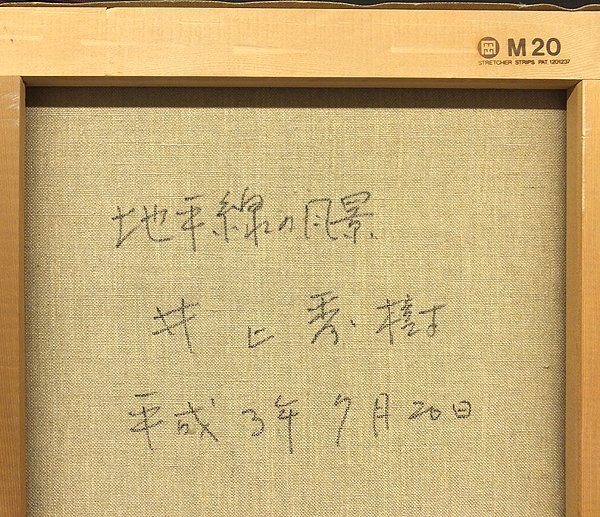 M20
STRETCHER STRIPS PAT. 1201237
地平線の風景
井上秀樹
平成3年7月20日